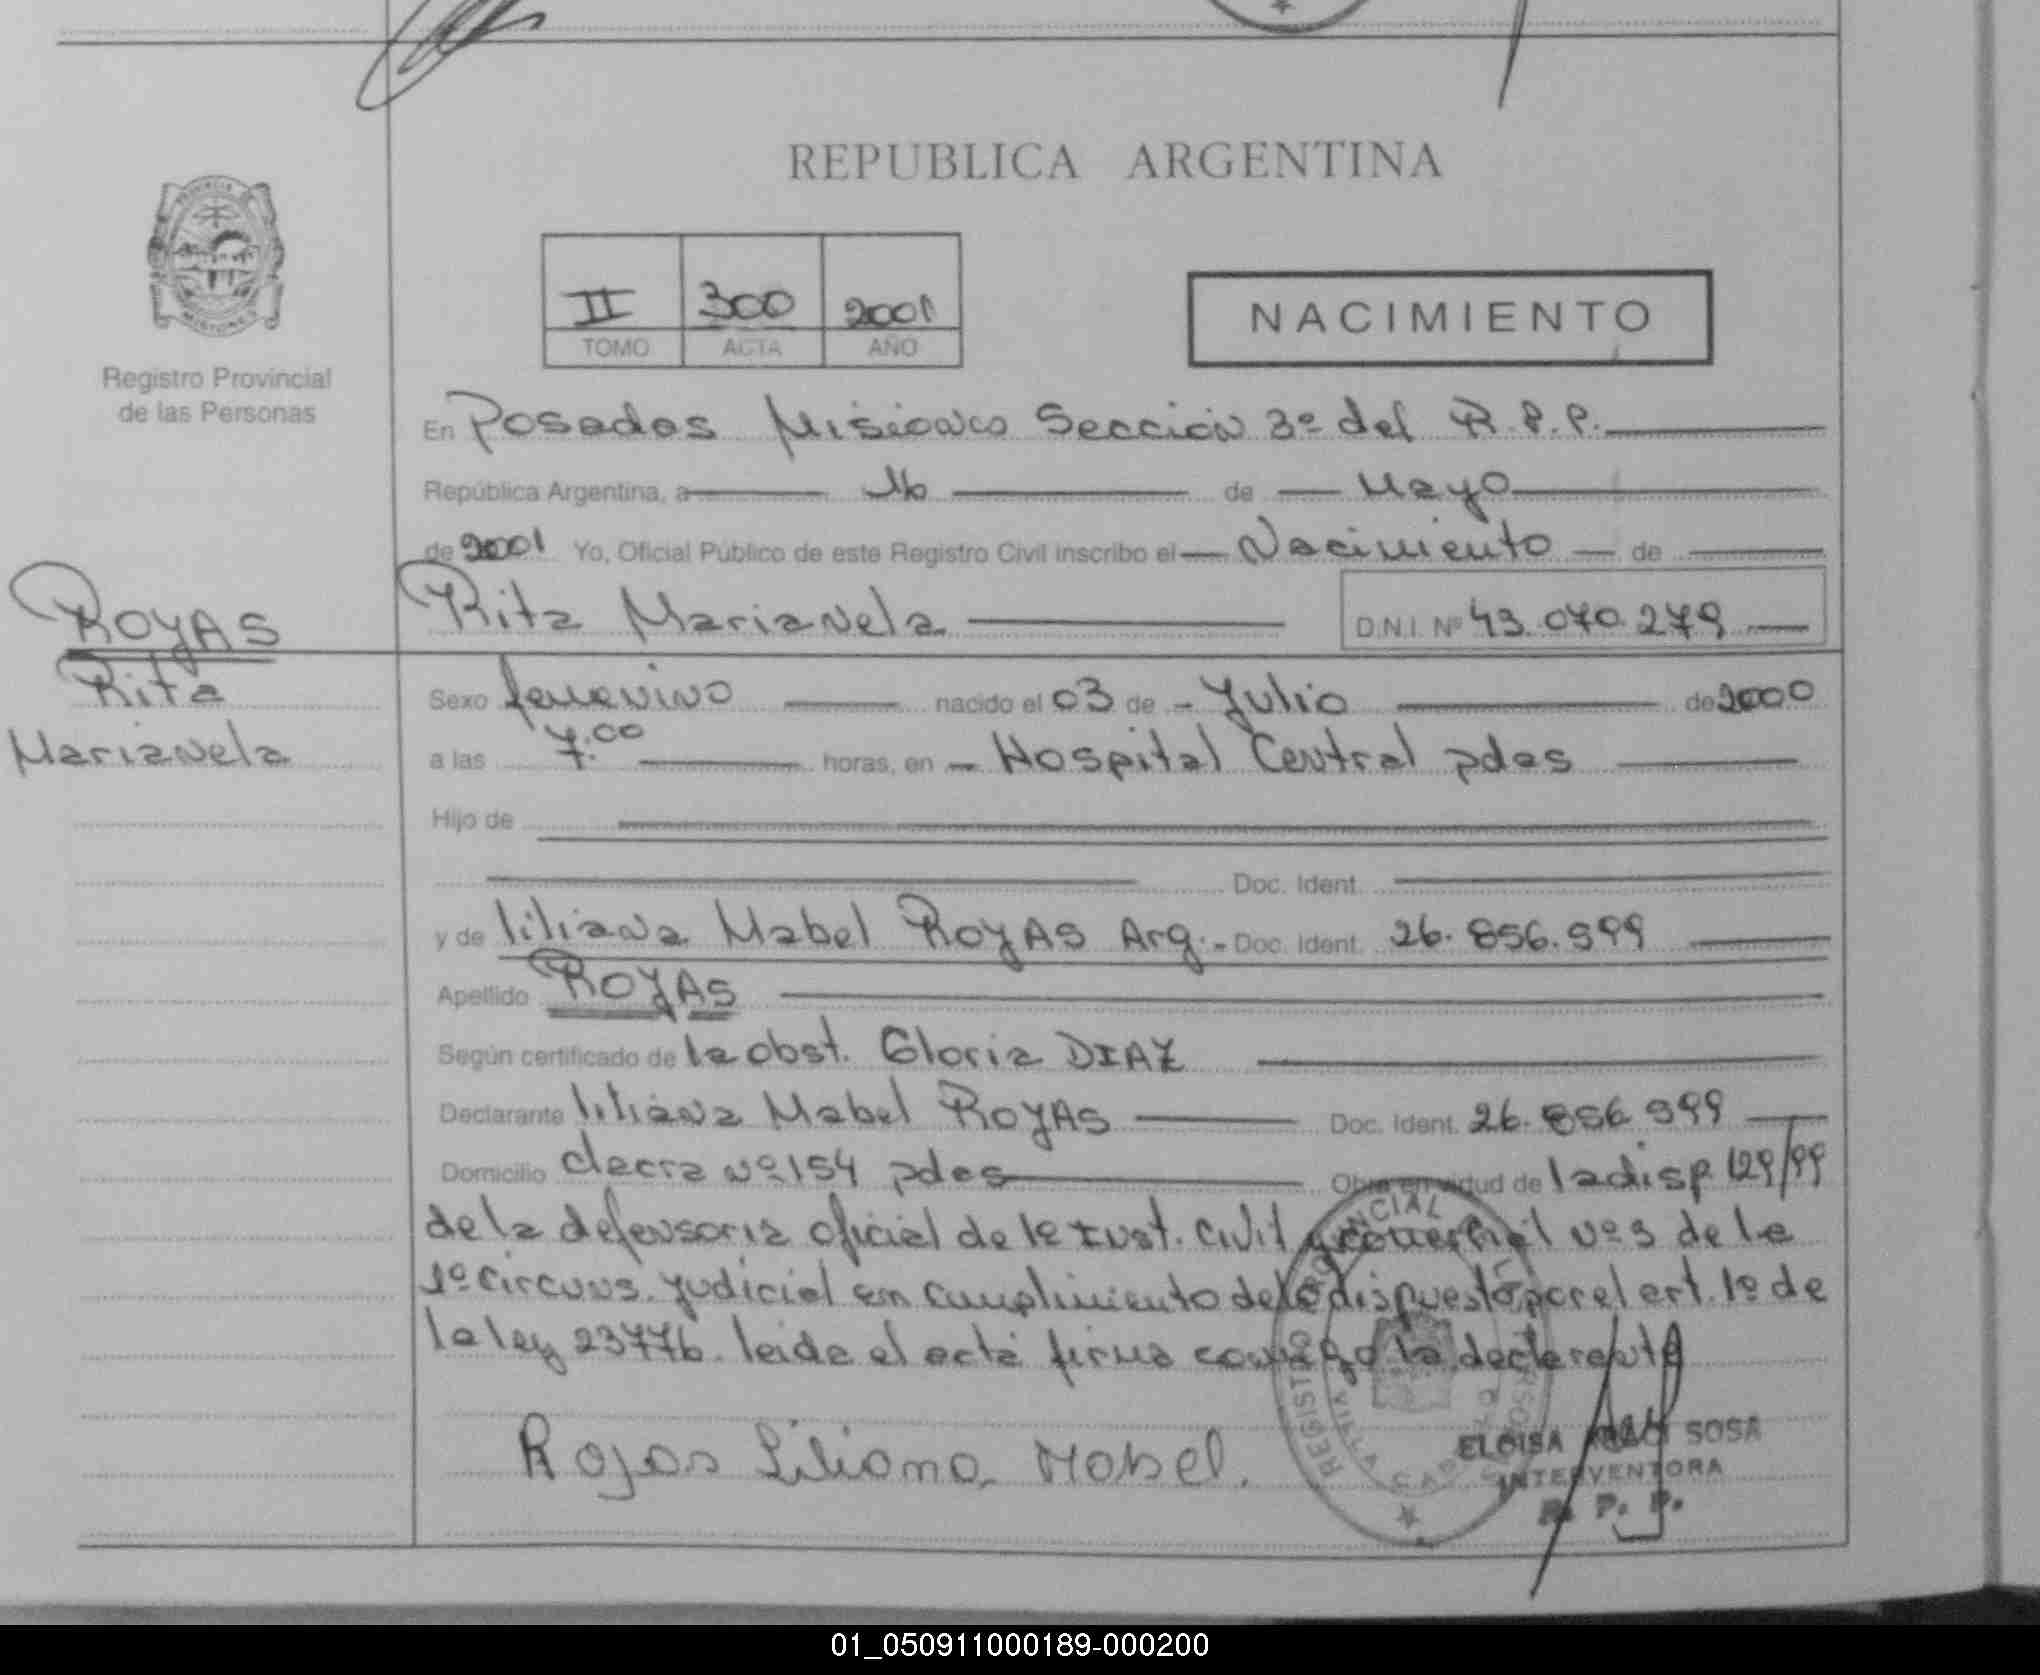 REPUBLICA ARGENTINA
PROVINCIA
MISIONES
Registro Provincial
de las Personas
II 300 2001
TOMO ACTA AÑO
NACIMIENTO
En Posadas Misiones Sección 3º del R.P.P.
República Argentina, a 16 de Mayo
de 2001 Yo, Oficial Público de este Registro Civil inscribo el Nacimiento de
Rita Marianela D.N.I. Nº 43.070.279
ROYAS
Rita
Marianela
Sexo femenino nacido el 03 de Julio de 2000
a las 7:00 horas, en Hospital Central pdas
Hijo de
Doc. Ident.
y de liliana Mabel ROYAS Arg. Doc. Ident. 26.856.599
Apellido ROYAS
Según certificado de la obst. Gloria DIAZ
Declarante liliana Mabel ROYAS Doc. Ident. 26.856.599
Domicilio chacra nº 154 pdas Obra en virtud de la disp. 129/99
de la defensoria oficial de 1º Inst. Civil y comercial nº 3 de la
1º circuns. judicial en cumplimiento de lo dispuesto por el art. 1º de
la ley 23776. leida el acta firma conmigo la declarante
Rojas Liliana Mabel.
REGISTRO PROVINCIAL
ELOISA SOSA
INTERVENTORA
R. P. P.
01_050911000189-000200